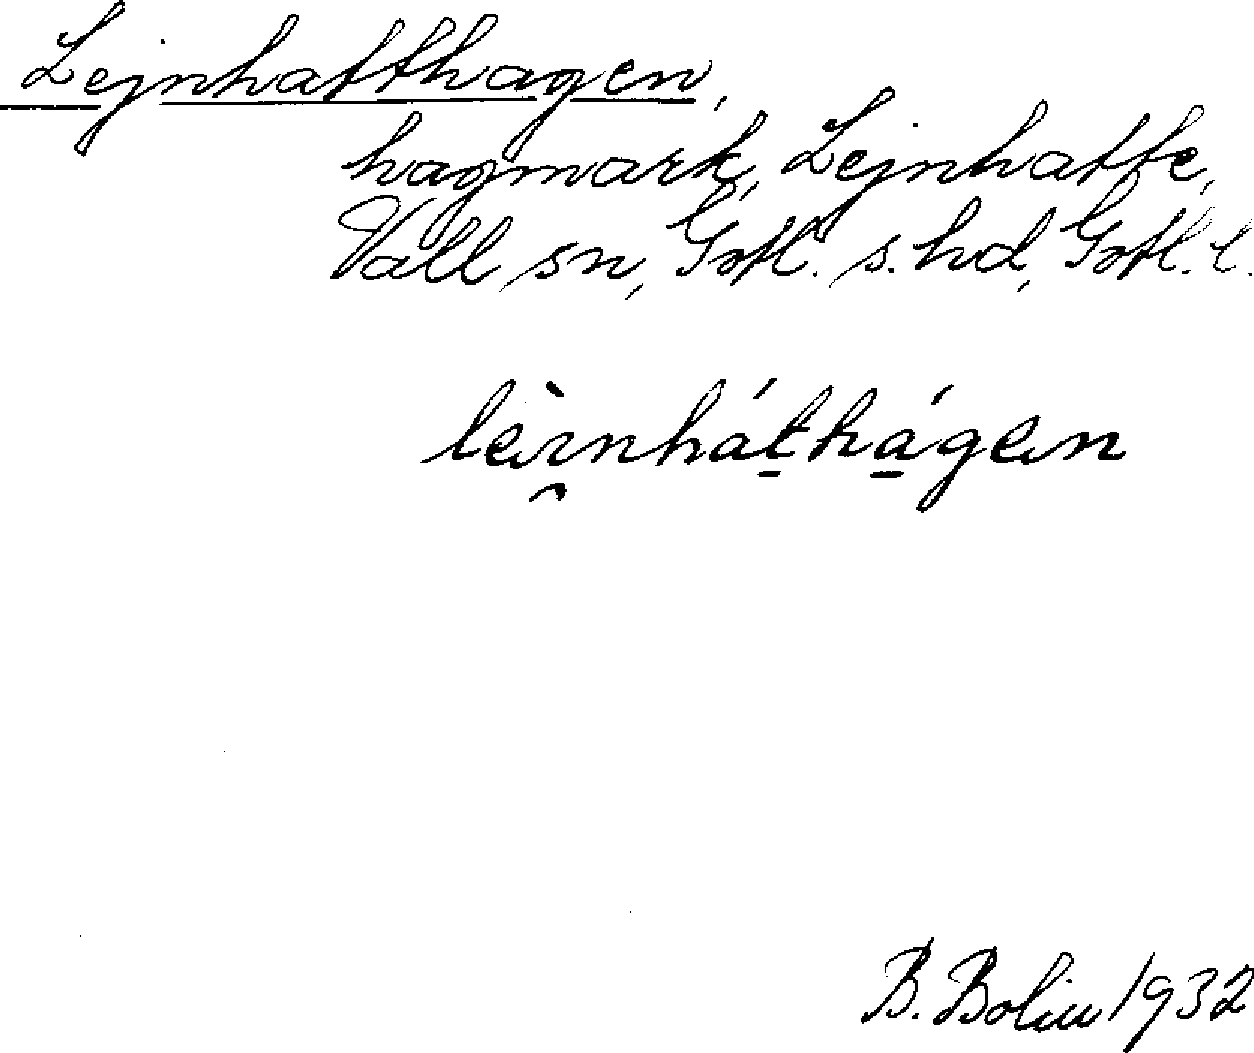 Lejnhatthagen,
hagmark, Lejnhatte,
Vall sn, Gotl. s. hd, Gotl. l.
lèi̯nhát̠há̠gen
B. Bolin 1932